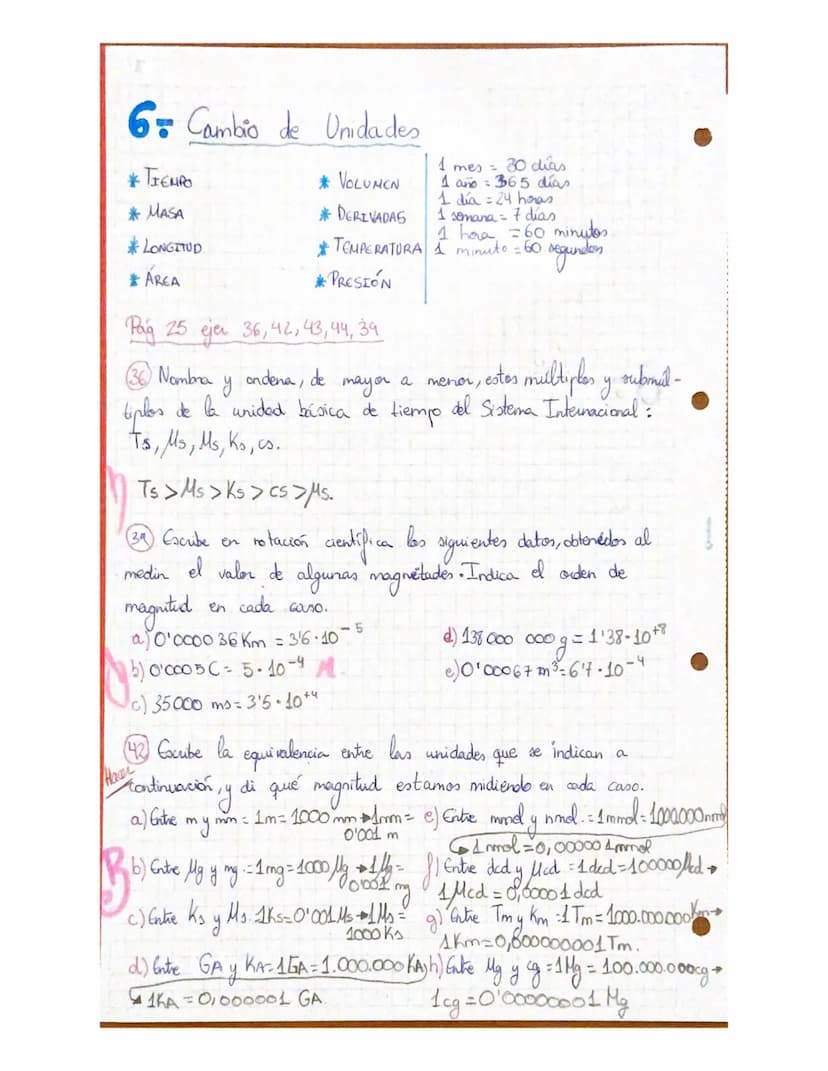 6.- Cambio de Unidades
* TIEMPO
* MASA
* LONGITUD
* ÁREA
* VOLUMEN
* DERIVADAS
* TEMPERATURA
* PRESIÓN
1 mes = 30 días
1 año = 365 días
1 día = 24 horas
1 semana = 7 días
1 hora = 60 minutos
1 minuto = 60 segundos
Pág 25 ejer 36, 42, 43, 44, 39
36 Nombra y ordena, de mayor a menor, estos múltiplos y submúl-
tiplos de la unidad básica de tiempo del Sistema Internacional:
Ts, Ms, μs, Ks, cs.
Ts > Ms > Ks > cs > μs.
39 Escribe en notación científica los siguientes datos, obtenidos al
medir el valor de algunas magnitudes. Indica el orden de
magnitud en cada caso.
a) 0'000036 Km = 3'6·10⁻⁵
b) 0'0005 C = 5·10⁻⁴
c) 35000 ms = 3'5·10⁺⁴
d) 138 000 000 g = 1'38·10⁺⁸
e) 0'00067 m³ = 6'7·10⁻⁴
42 Escribe la equivalencia entre las unidades que se indican a
Hacer
continuación, y di qué magnitud estamos midiendo en cada caso.
a) Entre m y mm = 1m = 1000 mm → 1mm =
0'001 m
b) Entre μg y mg = 1mg = 1000 μg → 1 μg =
0'001 mg
c) Entre Ks y Ms. 1Ks = 0'001 Ms → 1 Ms =
1000 Ks
d) Entre GA y KA = 1GA = 1.000.000 KA
↳ 1KA = 0,000001 GA
e) Entre mmol y nmol. = 1mmol = 1000000 nmol
↳ 1 nmol = 0,000001 mmol
f) Entre dcd y μcd = 1dcd = 100000 μcd →
1 μcd = 0,00001 dcd
g) Entre Tm y Km = 1 Tm = 1000.000.000 Km →
1Km = 0,000000001 Tm.
h) Entre Mg y cg = 1Mg = 100.000.000cg →
1cg = 0'00000001 Mg